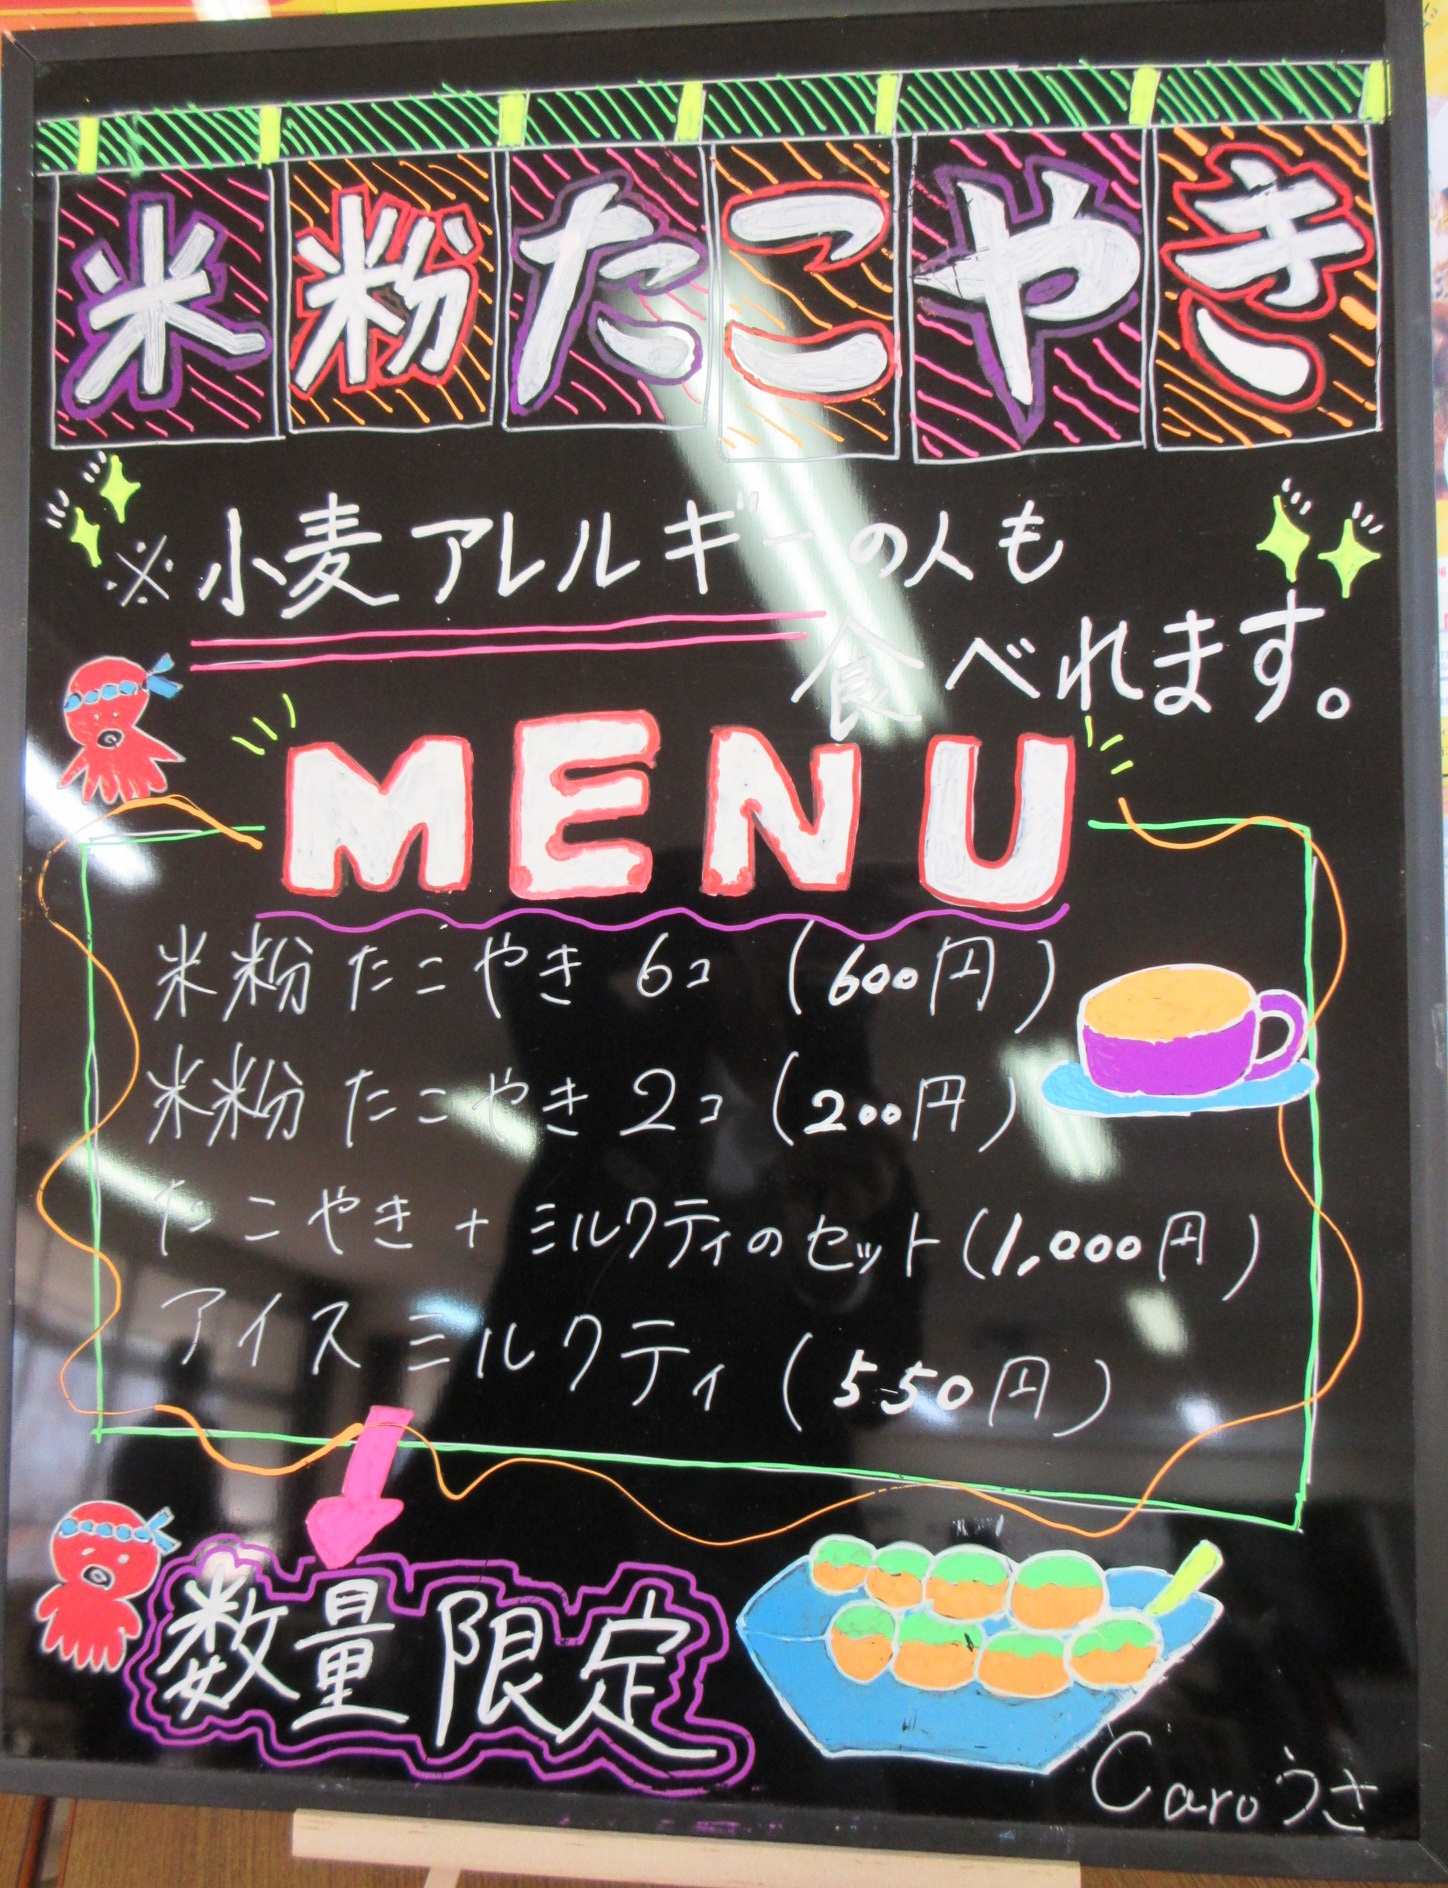 米粉たこやき
※小麦アレルギーの人も
食べれます。
MENU
米粉たこやき 6コ (600円)
米粉たこやき 2コ (200円)
たこやき+ミルクティのセット(1,000円)
アイスミルクティ (550円)
数量限定
Caroうさ